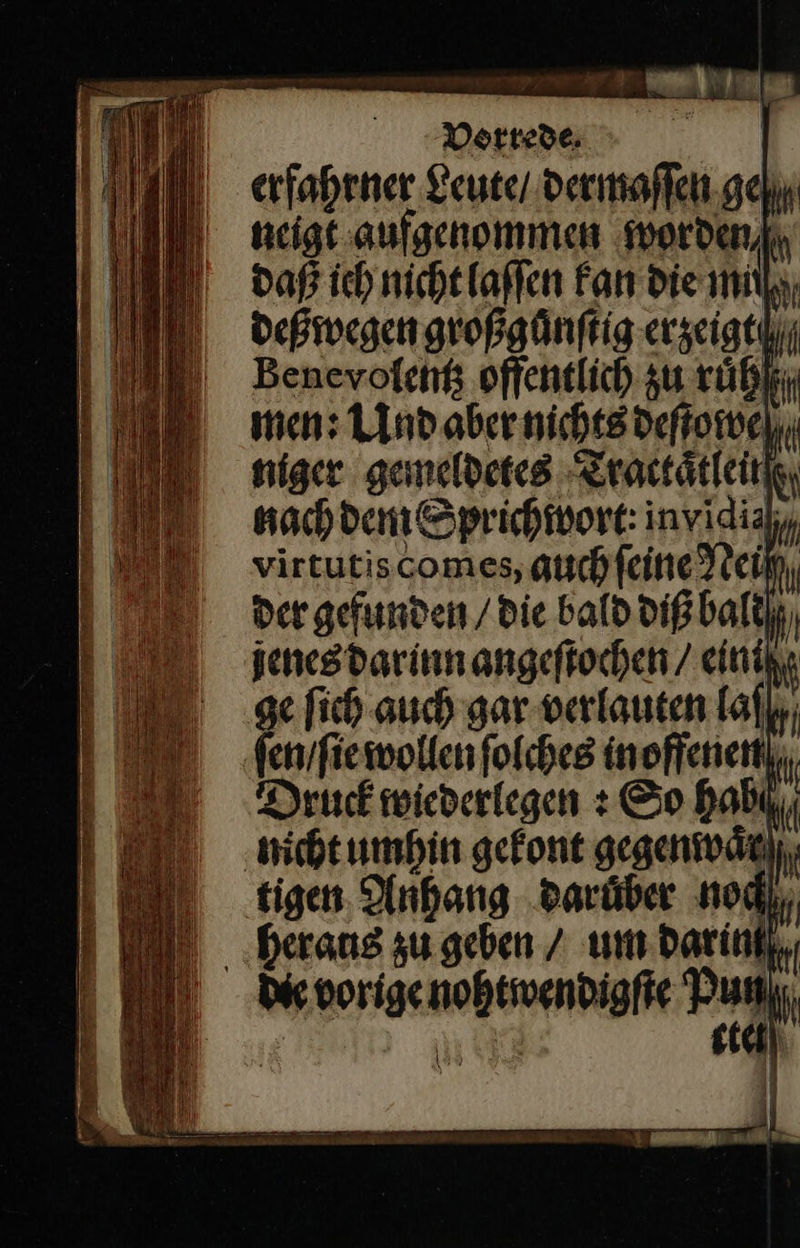 Vorrede.
erfahrner Leute/ dermaſſen ge
neigt aufgenommen worden/
daß ich nicht laſſen kan die mi
deßwegen großgůnſtig erzeigt
Benevolentz offentlich zu růh
men: Und aber nichts deſtowe
niger gemeldetes Tractåtlein
nach dem Sprichwort: invidia
virtutis comes, auch ſeine Nei
der gefunden / die bald diß bald
jenes darinn angeſtochen / eini
ge ſich auch gar verlauten laſ
ſen/ſie wollen ſolches in offenem
Druck wiederlegen : So hab
nicht umhin gekont gegenwår
tigen Anhang darůber noch
heraus zu geben / um darinn
die vorige nohtwendigſte Pun
cten